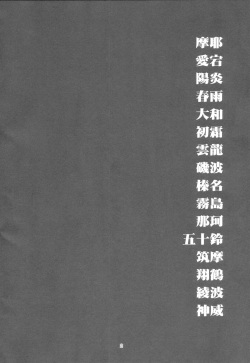 摩耶
愛宕
陽炎
春雨
大和
初霜
雲龍
磯波
榛名
霧島
那珂
五十鈴
筑摩
翔鶴
綾波
神威
8